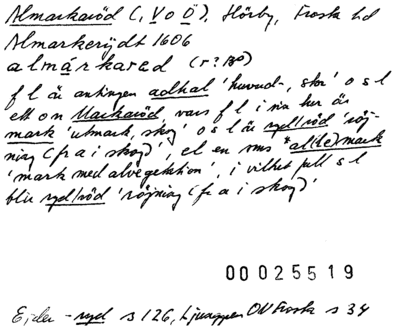 Almarkaröd (, V o Ö), Hörby, Frosta hd
Almarkerijdt 1606
almárkared (r?B⁰)
f l är antingen adhal 'huvud-, stor' o s l
ett on Markaröd, vars f l i sin tur är
mark 'utmark, skog' o s l är ryd/röd 'röj-
ning (fr a i skog)', el en sms *al(le)mark
'mark med alvegetation', i vilket fall s l
blir ryd/röd 'röjning (fr a i skog)'
00025519
Ejder -ryd s 126, Ljunggren ON Frosta s 34